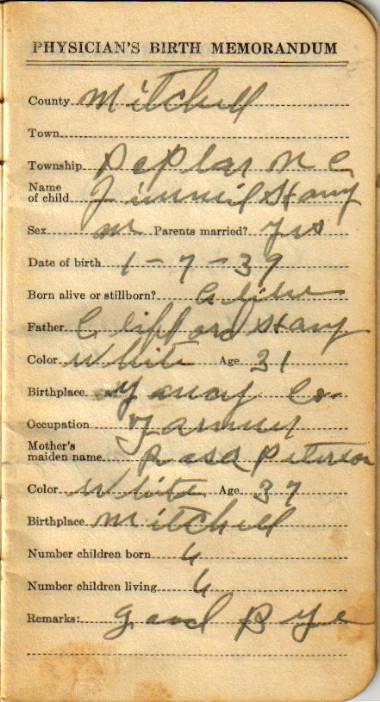 PHYSICIAN'S BIRTH MEMORANDUM
County Mitchell
Town
Township Poplar N C
Name of child Jimmie Stany
Sex m Parents married? yes
Date of birth 1-7-39
Born alive or stillborn? alive
Father Clifford Stany
Color White Age 31
Birthplace Yancy Co.
Occupation Farmer
Mother's maiden name Rosa Peterson
Color White Age 37
Birthplace Mitchell
Number children born 4
Number children living 4
Remarks: good B